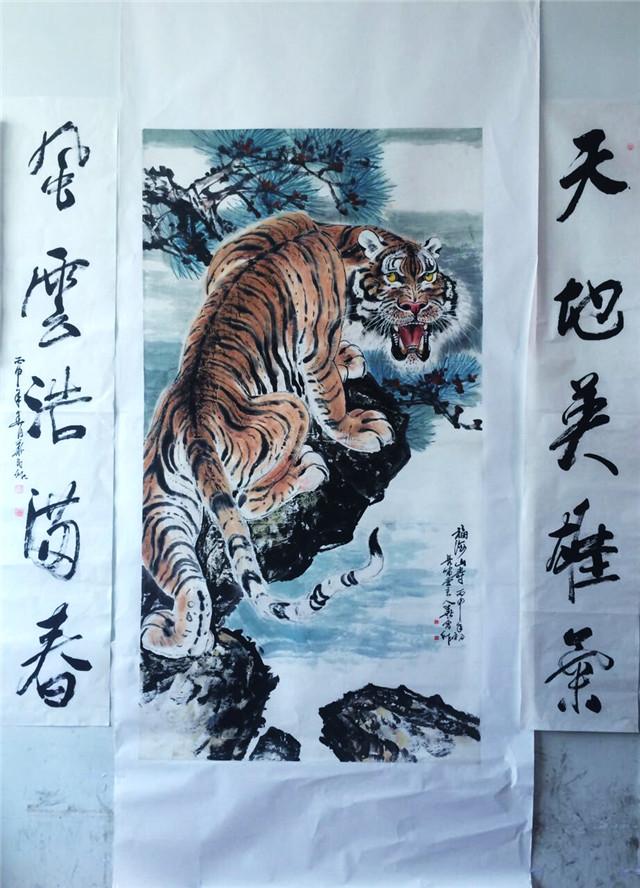 天地英雄氣
福海山壽 丙申
風雲浩滿春
丙申年春月